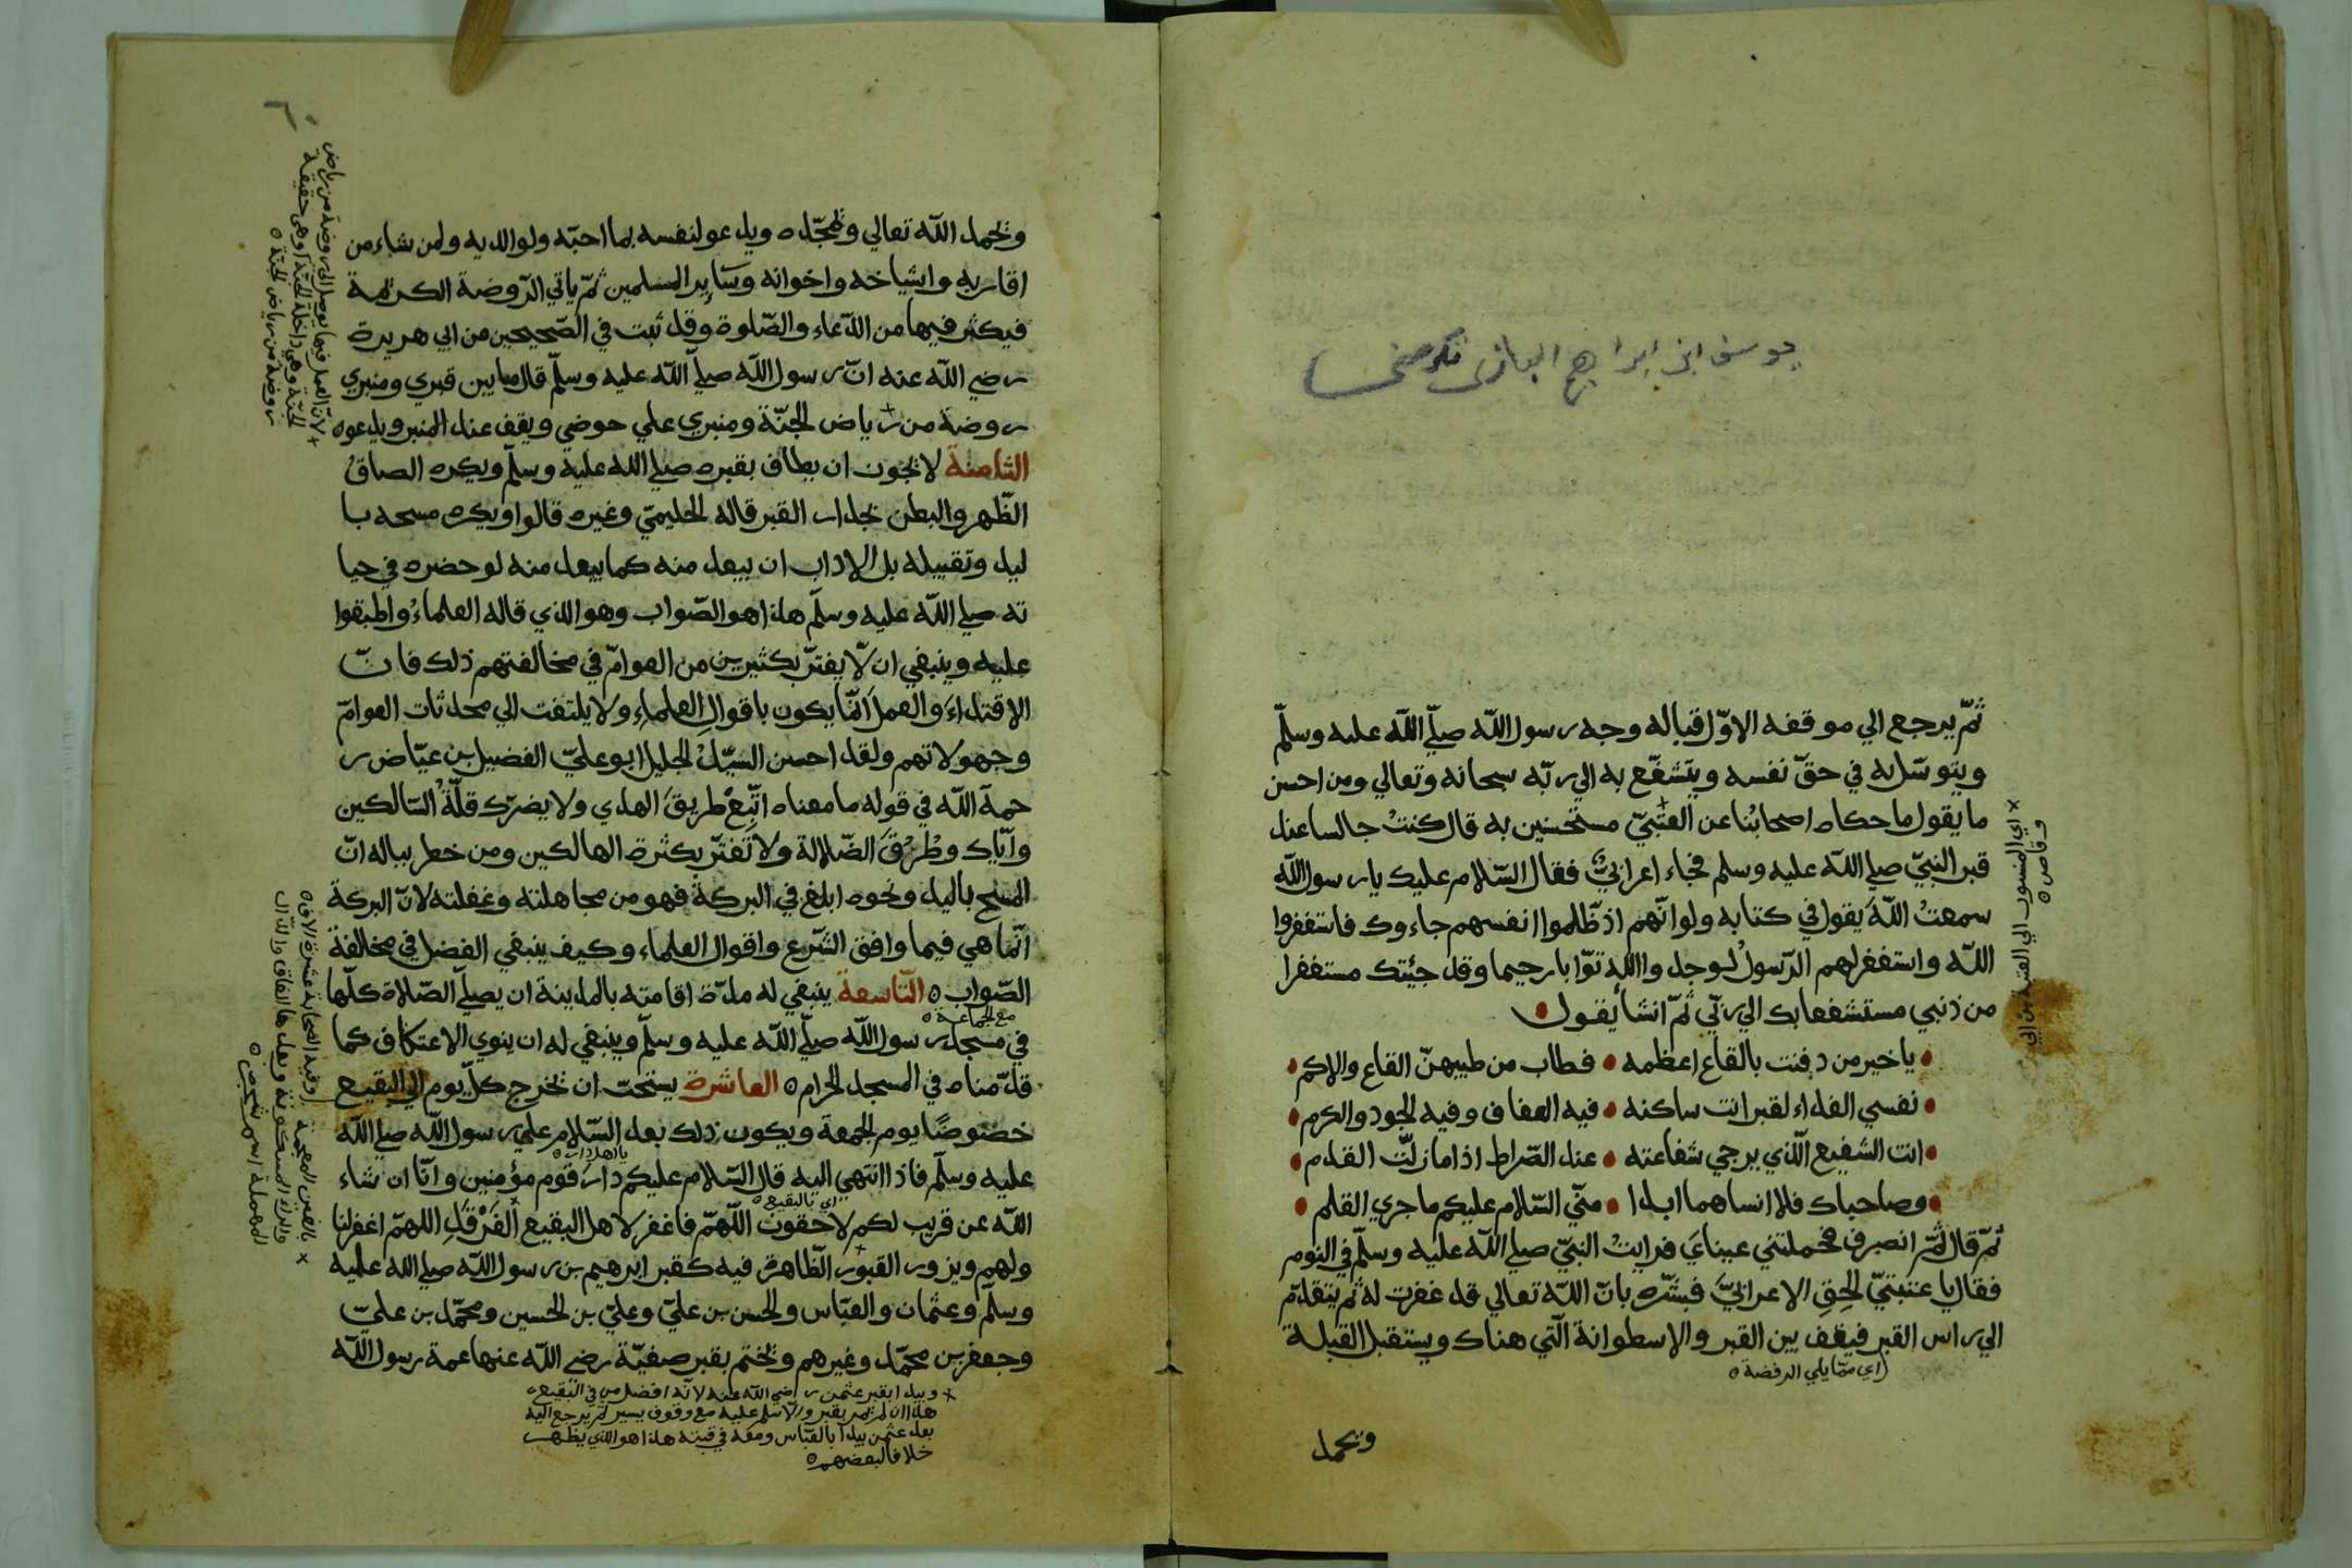 يوسف ابن ابراهيم
ثمّ يرجع الي موقفه الاوّل قبالة وجه رسول اللّه صلّي اللّه عليه وسلّم
ويتوسّل به في حقّ نفسه ويتشفّع به الي ربّه سبحانه وتعالي ومن احسن
ما يقول ما حكاه اصحابُنا عن العتبيّ مستحسنين به قال كنتُ جالسا عند
قبر النبيّ صلي اللّه عليه وسلم فجاء اعرابيٌّ فقال السّلام عليك يا رسول اللّه
سمعتُ اللّهَ يقول في كتابه ولو انّهم اذ ظّلموا انفسهم جاءوك فاستغفروا
اللّه واستغفر لهم الرّسولُ لوجدوا اللّه توّابا رحيما وقد جئتك مستغفرا
من ذنبي مستشفعا بك الي ربّي ثمّ انشأ يقول
يا خير من دفنت بالقاع اعظمه • فطاب من طيبهنّ القاع والاكم
نفسي الفداء لقبر انت ساكنه • فيه العفاف وفيه الجود والكرم
انت الشفيع الّذي يرجي شفاعته • عند الصّراط اذا ما زلّت القدم
وصاحباك فلا انساهما ابدا • منّي السّلام عليكم ما جري القلم
ثمّ قال ثمّ انصرف فحملتني عيناي فرايتُ النبيّ صلي اللّه عليه وسلّم في النوم
فقال يا عتبتيّ الحِق الاعرابيَّ فبشّره بانّ اللّه تعالي قد غفرت له ثم يتقدّم
الي راس القبر فيقف بين القبر والاسطوانة الّتي هناك ويستقبل القبلة
اي ممّا يلي الرفضة
ويحمد
× اي المنسوب الي العتبة بن ابي
وقاص
ويحمد اللّه تعالي ويمجّده ويدعو لنفسه بما احبّه ولوالديه ولمن شاء من
اقاربه واشياخه واخوانه وسَاير المسلمين ثمّ ياتي الرّوضة الكريمة
فيكثر فيها من الدّعاء والصّلوة وقد ثبت في الصّحيحين من ابي هريرة
رضي اللّه عنه انّ رسول اللّه صلّي اللّه عليه وسلّم قال ما بين قبري ومنبري
روضة من رياض الجنّة ومنبري علي حوضي ويقف عند المنبر ويدعو
الثّامنة لا يجوز ان يطاف بقبره صلي اللّه عليه وسلّم ويكره الصاق
الظّهر والبطن بجدار القبر قاله الحليميّ وغيره قالوا ويكره مسحه با
ليد وتقبيله بل الاداب ان يبعد منه كما يبعد منه لو حضره في حيا
ته صلي اللّه عليه وسلّم هذا هو الصّواب وهو الذي قاله العلماءُ واطبقوا
عليه وينبغي ان لّا يغترّ بكثيرين من العوامّ في مخالفتهم ذلك فانّ
الاقتداءَ والعملَ انّما يكون باقوالِ العلماءِ ولا يلتفت الي محدثات العوامّ
وجهولاتهم ولقد احسن السيّدُ الجليل ابو عليّ الفضيل بن عيّاض ر
حمة اللّه في قوله ما معناه اتّبِعْ طريقَ الهدي ولا يضرّك قلّةُ السّالكين
وايّاك وطُرُقَ الضّلالة ولا تغترّ بكثرة الهالكين ومن خطر بباله انّ
المسح باليد ونحوه ابلغ في البركة فهو من مجاهلته وغفلته لانّ البركة
انّما هي فيما وافق الشّرع واقوال العلماء وكيف ينبغي الفضل في مخالفة
الصّواب التّاسعة ينبغي له مدّة اقامته بالمدينة ان يصلّي الصّلاة كلّها
مع الجماعة
في مسجد رسول اللّه صلّي اللّه عليه وسلّم وينبغي له ان ينوي الاعتكاف كما
قدّمناه في المسجد الحرام العاشرة يستحبّ ان يخرج كلّ يوم الي البقيع
خصوصًا يوم الجمعة ويكون ذلك بعد السّلام علي رسول اللّه صلي اللّه
يا اهل دار
عليه وسلّم فاذا انتهي اليه قال السّلام عليكم دارَ قوم مؤمنين وانّا ان شاء
اي بالبقيع
اللّه عن قريب لكم لاحقون اللّهمّ فاغفر لاهل البقيع الغَرْقَدِ اللهمّ اغفر لنا
ولهم ويزور القبور الظّاهرة فيه كقبر ابرهيم بن رسول اللّه صلي اللّه عليه
وسلّم وعثمان والعبّاس والحسن بن عليّ وعليّ بن الحسين ومحمّد بن عليّ
وجعفر بن محمّد وغيرهم ويختم بقبر صفيّة رضي اللّه عنها عمة رسول اللّه
× ويبدا بقبر عثمن رضي اللّه عنه لانّه افضل من في البقيع
هذا ان لم يمر بقبر والّا سلم عليه مع وقوف يسير ثم يرجع اليه
بعد عثمن يبدا بالعبّاس ومعه في قبته هذا هو الذي يظهر
خلافا لبعضهم
× لانّ العمل فيها يوصل الي روضة من رياض
الجنّة وهي داخلة الجنّة او هي حقيقة
روضة من رياض الجنّة
× بالغين المعجمة
والراء المسكونة وبعدها القاف والدال
المهملة اسم شجر